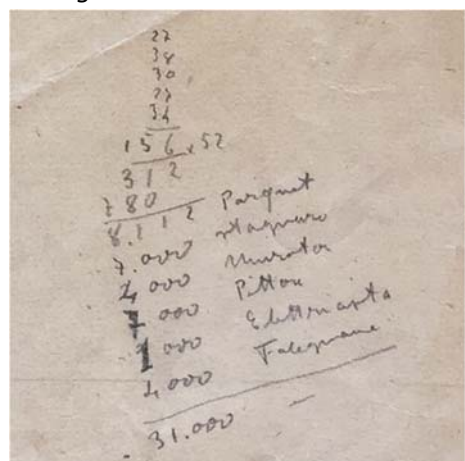 27
38
30
27
34
156 x 52
312
780
8.112 Parquet
7.000 stagnaro
4000 Murator
7 000 Pittore
1 000 Elettricista
4000 Falegname
31.000 –